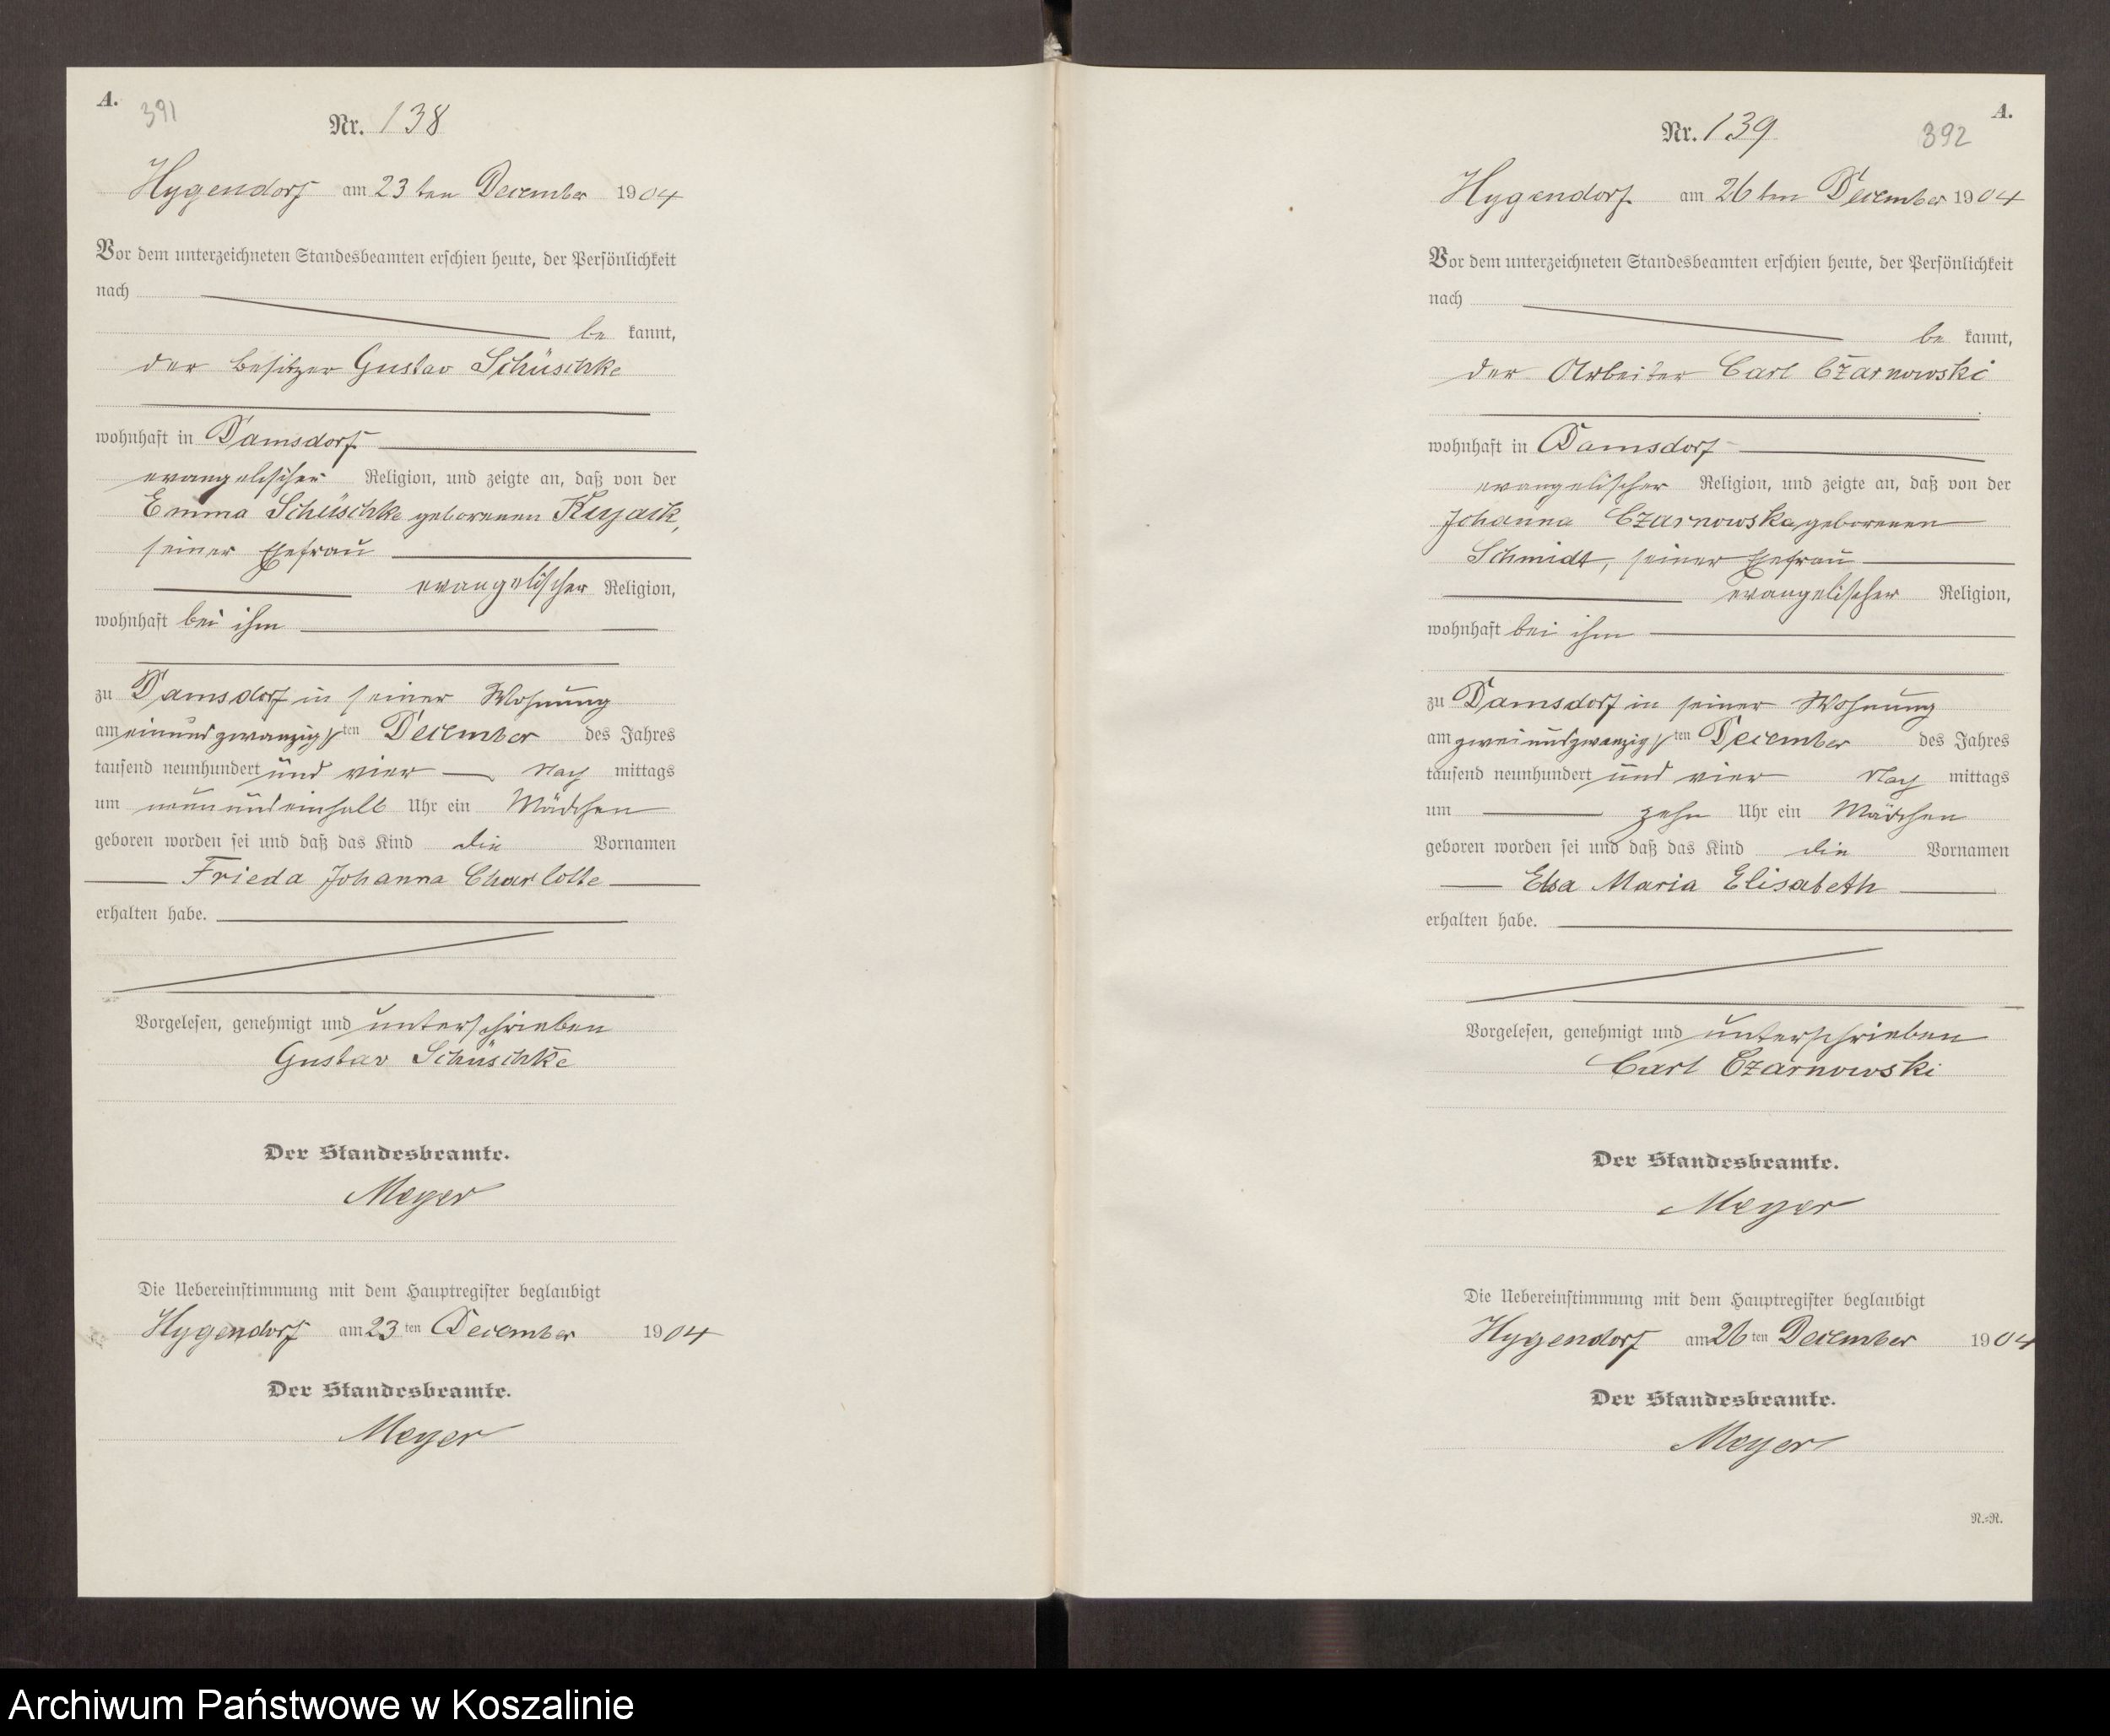 A.
391
Nr. 138
Hygendorf am 23ten December 1904
Vor dem unterzeichneten Standesbeamten erschien heute, der Persönlichkeit
nach
be kannt,
der Besitzer Gustav Schüschke
wohnhaft in Damsdorf
evangelischer Religion, und zeigte an, daß von der
Emma Schüschke geborenen Kujack,
seiner Ehefrau
evangelischer Religion,
wohnhaft bei ihm
zu Damsdorf in seiner Wohnung
am einundzwanzigsten December des Jahres
tausend neunhundert und vier Nach mittags
um neunundeinhalb Uhr ein Mädchen
geboren worden sei und daß das Kind die Vornamen
Frieda Johanna Charlotte
erhalten habe.
Vorgelesen, genehmigt und unterschrieben
Gustav Schüschke
Der Standesbeamte.
Meyer
Die Uebereinstimmung mit dem Hauptregister beglaubigt
Hygendorf am 23ten December 1904
Der Standesbeamte.
Meyer
A.
Nr. 139
392
Hygendorf am 26ten December 1904
Vor dem unterzeichneten Standesbeamten erschien heute, der Persönlichkeit
nach
be kannt,
der Arbeiter Carl Czarnowski
wohnhaft in Damsdorf
evangelischer Religion, und zeigte an, daß von der
Johanna Czarnowska geborenen
Schmidt, seiner Ehefrau
evangelischer Religion,
wohnhaft bei ihm
zu Damsdorf in seiner Wohnung
am zweiundzwanzigsten December des Jahres
tausend neunhundert und vier Nach mittags
um zehn Uhr ein Mädchen
geboren worden sei und daß das Kind die Vornamen
Elsa Maria Elisabeth
erhalten habe.
Vorgelesen, genehmigt und unterschrieben
Carl Czarnowski
Der Standesbeamte.
Meyer
Die Uebereinstimmung mit dem Hauptregister beglaubigt
Hygendorf am 26ten December 1904
Der Standesbeamte.
Meyer
N.=R.
Archiwum Państwowe w Koszalinie